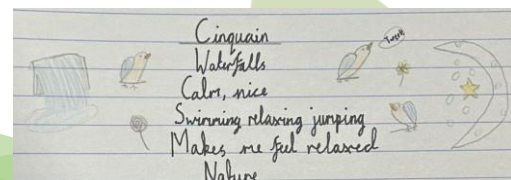 Cinquain
Waterfalls
Tweet
Calm, nice
Swimming relaxing jumping
Makes me feel relaxed
Nature